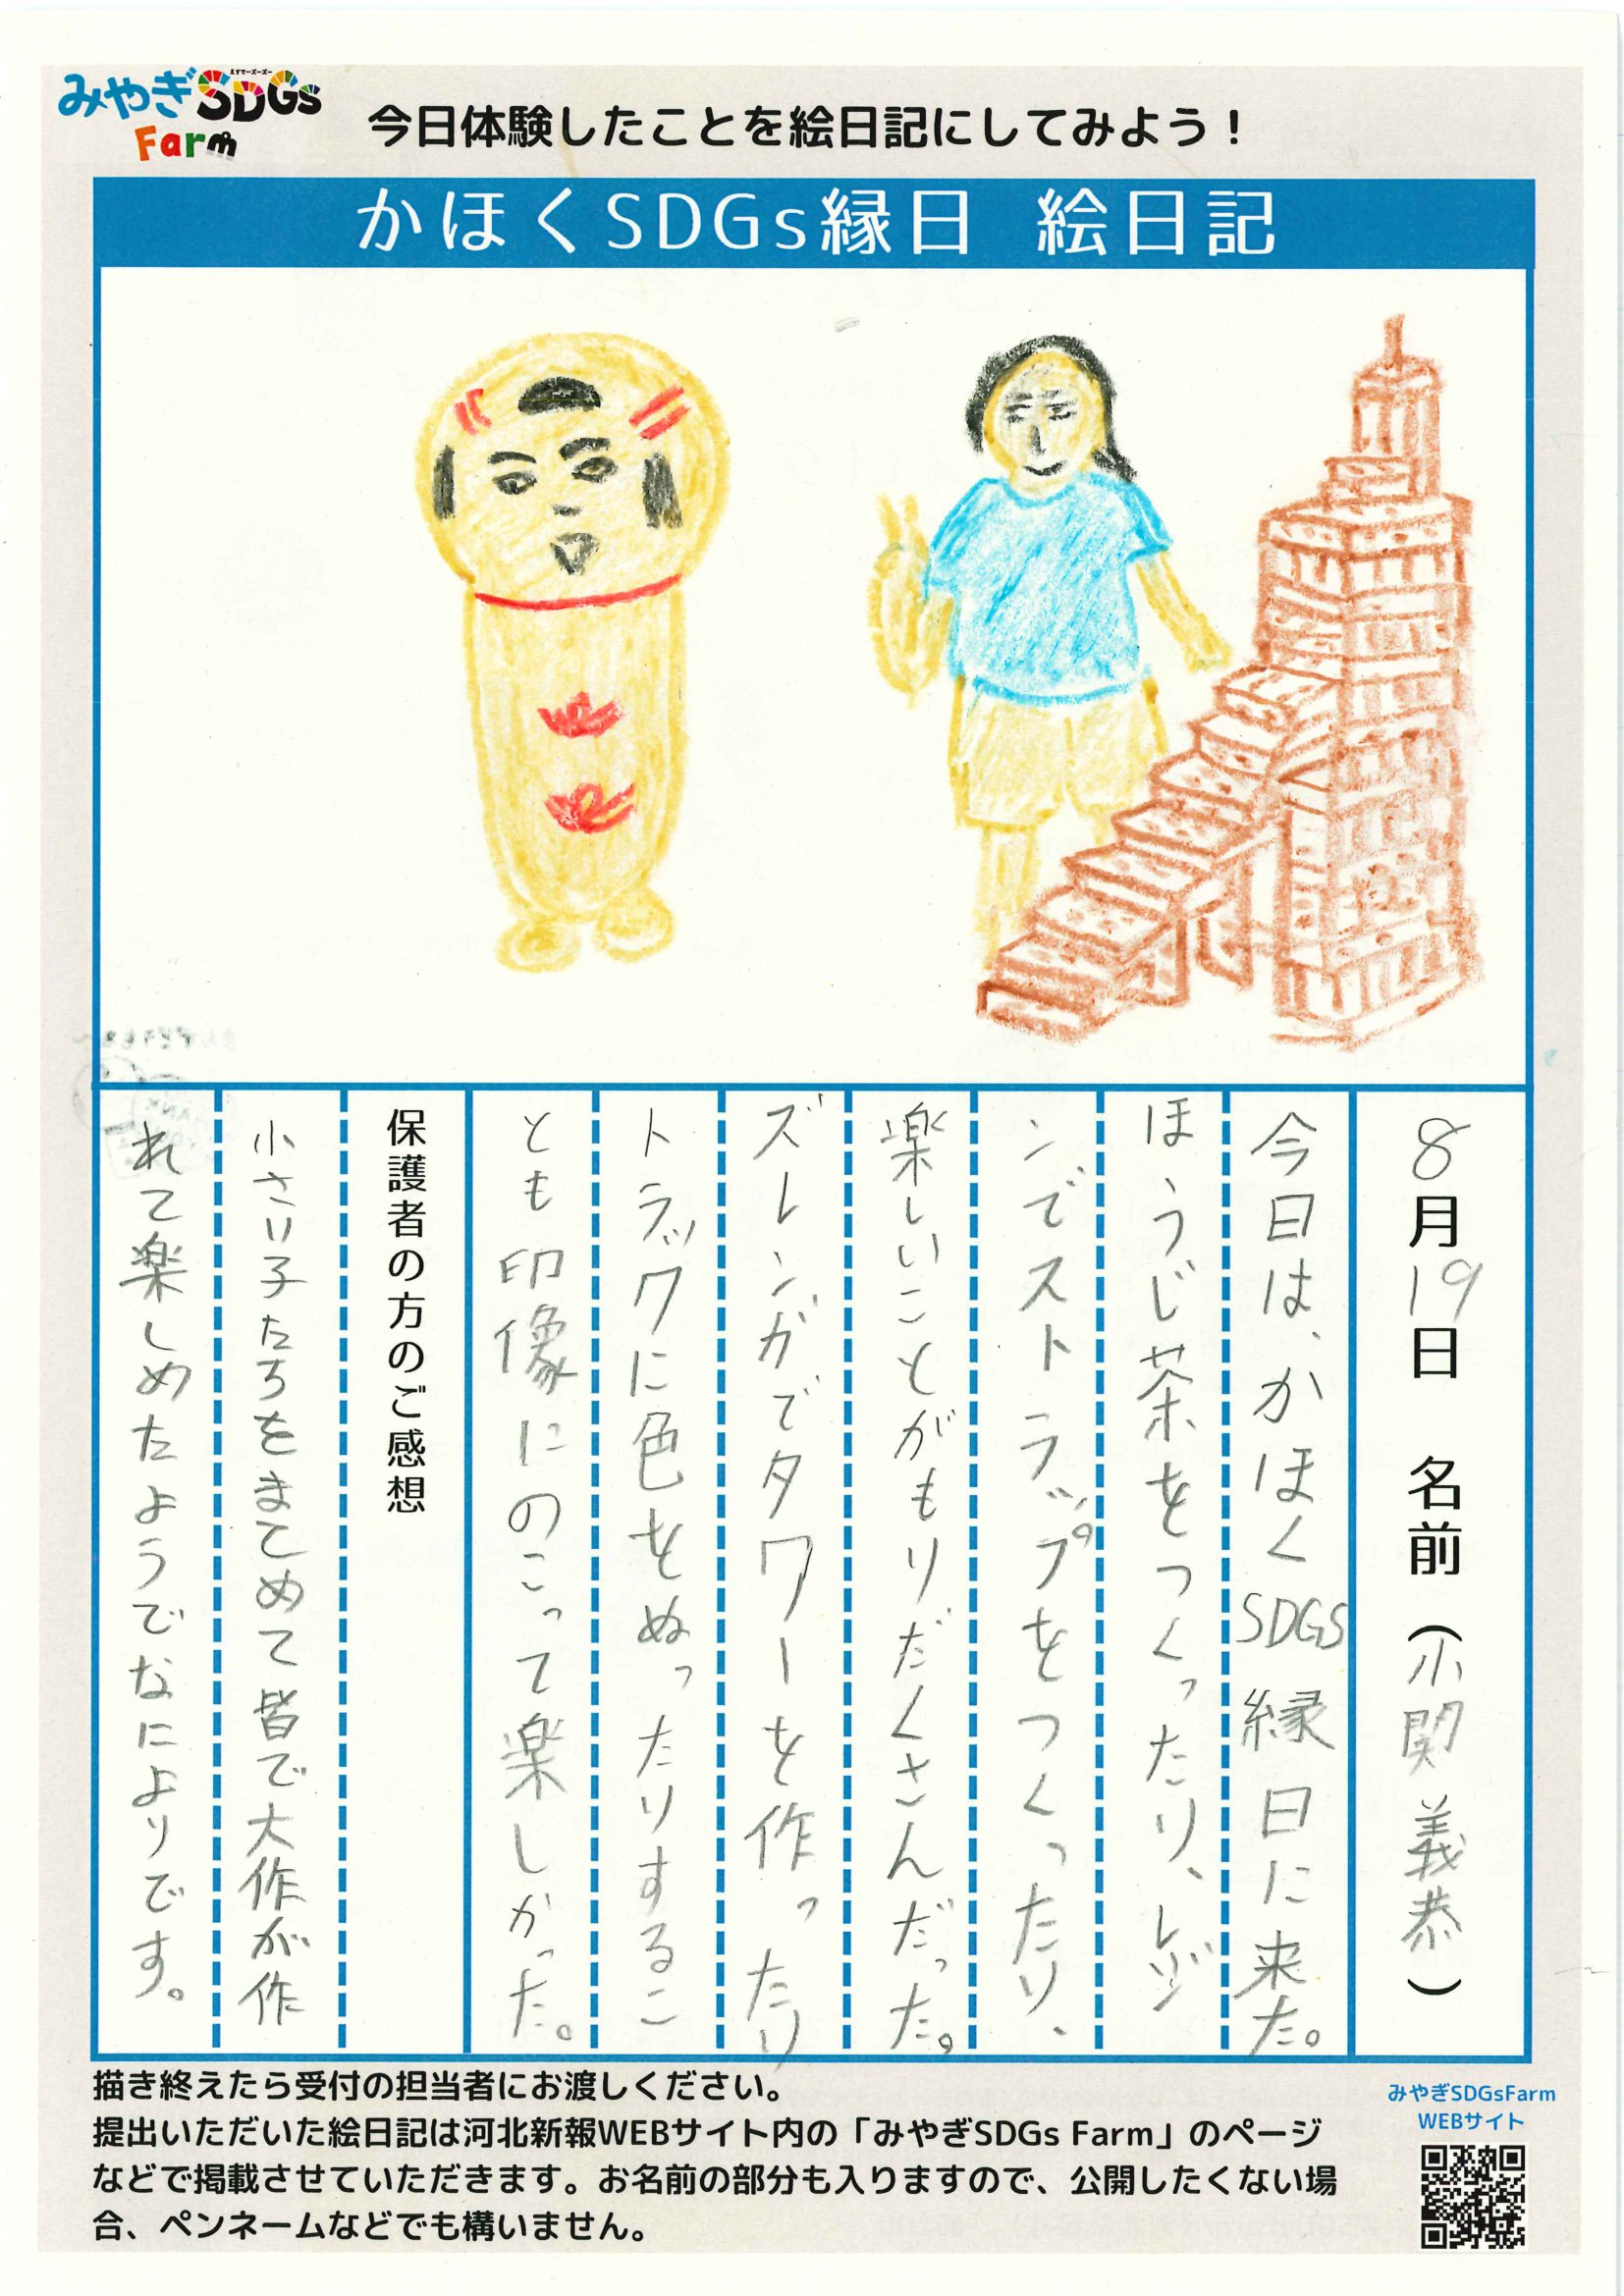 みやぎSDGs
エスディージーズ
Farm
今日体験したことを絵日記にしてみよう！
かほくSDGs縁日 絵日記
8月19日 名前（小関 義恭）
今日は、かほくSDGS縁日に来た。
ほうじ茶をつくったり、レジ
ンでストラップをつくったり、
楽しいことがもりだくさんだった。
ズレンガでタワーを作ったり
トラックに色をぬったりするこ
とも印像にのこって楽しかった。
保護者の方のご感想
小さい子たちをまとめて皆で大作が作
れて楽しめたようでなによりです。
描き終えたら受付の担当者にお渡しください。
提出いただいた絵日記は河北新報WEBサイト内の「みやぎSDGs Farm」のページ
などで掲載させていただきます。お名前の部分も入りますので、公開したくない場
合、ペンネームなどでも構いません。
みやぎSDGsFarm
WEBサイト